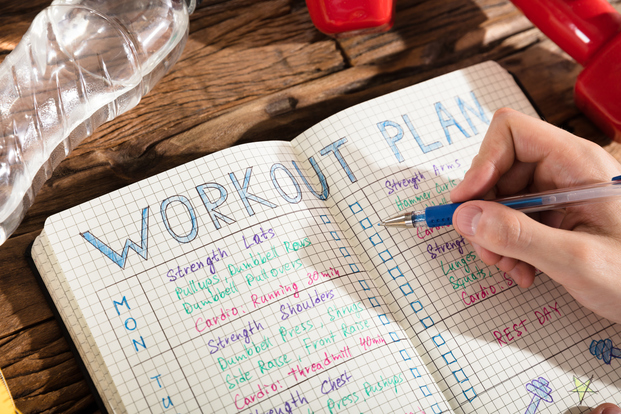 WORKOUT PLAN
MON
Strength Lats
Pullups Dumbbell Rows
Dumbbell Putovers
Cardio: Running 30 min
TU
Strength Shoulders
Dumbbell Press, Shrugs
Side Raise, Front Raise
Cardio: Threadmill 40min
Strength Chest
Press Pushups
Strength Arms
Hammer Curls
Lunges
Squats
Cardio
REST DAY